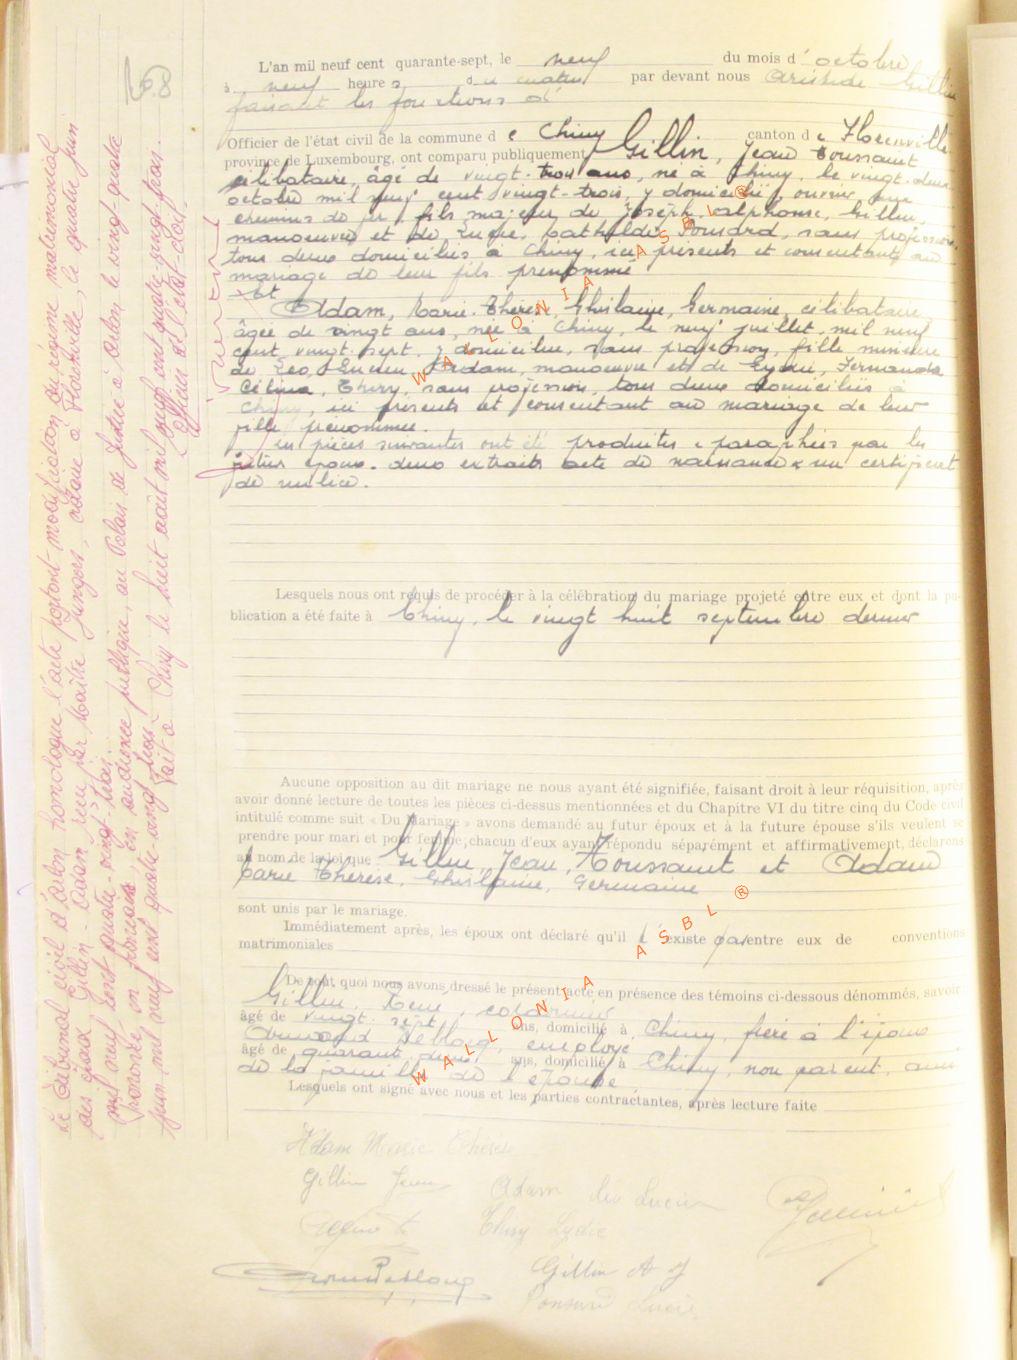 L'an mil neuf cent quarante-sept, le neuf du mois d' octobre
à neuf heures du matin par devant nous Aristide Gillin
faisant les fonctions d'
Officier de l'état civil de la commune de Chiny canton de Florenville
province de Luxembourg, ont comparu publiquement Gillin, Jean Toussaint
célibataire, âgé de vingt-trois ans, né à Chiny, le vingt-deux
octobre mil neuf cent vingt-trois, y domicilié, ouvrier aux
chemins de fer, fils majeur de Joseph, Alphonse, Gillin,
manoeuvre et de Lucie, Bathilde, Ponsard, sans profession,
tous deux domiciliés à Chiny, ici présents et consentants au
mariage de leur fils prénommé
Et
Adam, Marie-Thérèse, Ghislaine, Germaine, célibataire,
âgée de vingt ans, née à Chiny, le neuf juillet, mil neuf
cent vingt-sept, y domiciliée, sans profession, fille mineure
de Léo, Lucien, Adam, manoeuvre et de Lydie, Fernande
Célina, Thiry, sans profession, tous deux domiciliés à
Chiny, ici présents et consentant au mariage de leur
fille prénommée.
Les pièces suivantes ont été produites & paraphées par les
futurs époux. deux extraits acte de naissance & un certificat
de milice.
Lesquels nous ont requis de procéder à la célébration du mariage projeté entre eux et dont la pu-
blication a été faite à Chiny, le vingt huit septembre dernier
Aucune opposition au dit mariage ne nous ayant été signifiée, faisant droit à leur réquisition, après
avoir donné lecture de toutes les pièces ci-dessus mentionnées et du Chapitre VI du titre cinq du Code civil
intitulé comme suit « Du Mariage » avons demandé au futur époux et à la future épouse s'ils veulent se
prendre pour mari et pour femme, chacun d'eux ayant répondu séparément et affirmativement, déclarons
au nom de la loi que Gillin, Jean, Toussaint et Adam
Marie Thérèse, Ghislaine, Germaine
sont unis par le mariage.
Immédiatement après, les époux ont déclaré qu'il n'existe pas entre eux de conventions
matrimoniales
De tout quoi nous avons dressé le présent acte en présence des témoins ci-dessous dénommés, savoir
Gillin, René,
âgé de vingt-sept ans, domicilié à Chiny, frère à l'époux
Armand Deblong, employé
âgé de quarante deux ans, domicilié à Chiny, non parent, ami
de la famille de l'épouse
Lesquels ont signé avec nous et les parties contractantes, après lecture faite
Adam Marie Thérèse
Gillin Jean Adam Léo Lucien
Thiry Lydie
Gillin A J
Ponsard Lucie
Le Tribunal civil d'Arlon homologue l'acte portant modification du régime matrimonial
des époux Gillin - Adam reçu par Maître Jungers, notaire à Florenville, le quatre juin
mil neuf cent quatre-vingt-trois.
Prononcée en français, en audience publique, au Palais de Justice à Arlon le vingt-quatre
juin mil neuf cent quatre-vingt-trois
Fait à Chiny le huit août mil neuf cent quatre-vingt-trois.
L'Officier de l'Etat-civil.
WALLONIA ASBL ®
WALLONIA ASBL ®